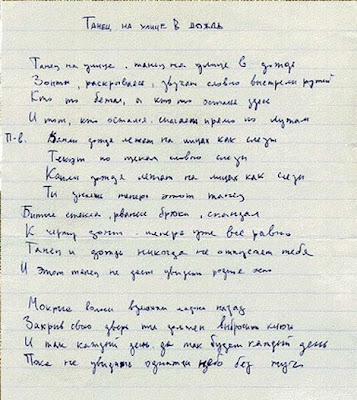 Танец на улице в дождь
Танец на улице, танец на улице в дожде
Зонты, раскрываясь, звучат словно выстрелы ружей
Кто то бежал, а кто то остался здесь
И тот, кто остался, шагает прямо по лужам
П-в. Капли дождя лежат на лицах как слезы
Текут по щекам словно слезы
Капли дождя лежат на лицах как слезы
Ты знаешь теперь этот танец
Битые стекла, рваные брюки, скандал
К черту зонт - теперь уже все равно
Танец и дождь никогда не отпустят тебя
И этот танец не даст увидеть родное
Мокрые волосы взъерошены назад
Закрыв свою дверь ты должен выбросить ключ
И так каждый день, да так будет каждый день
Пока не увидишь однажды небо без туч